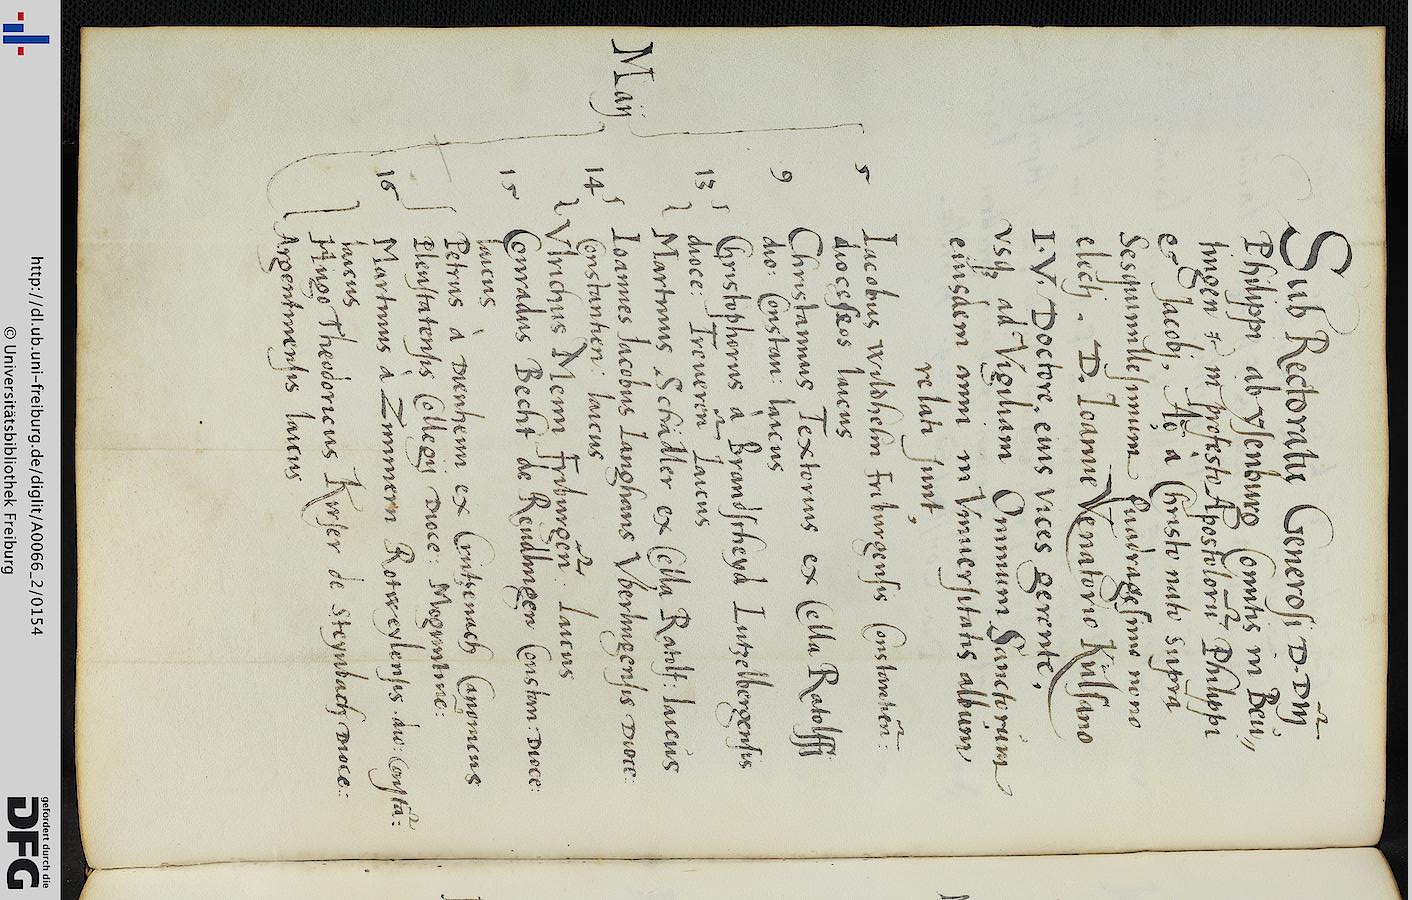 Sub Rectoratu Generosi D. Dñj
Philippi ab ysenburg Comitis in Beü„
tingen &c in profesto Apostolorũ Philippi
et Jacobj, Aõ a Christo nato supra
Sesquimillesimum Quadragesimo nono
electj. D. Ioanne Venatorio
I. V. Doctore, eius vices gerente,
vsq3 ad Vigiliam Omnium Sanctorum
eiusdem anni in Vniuersitatis album
relati sunt,
Maij
5 Iacobus wildhelm Friburgensis Constantien̄:
dioceseos laicus
9 Christannus Textorius ex Cella Ratolffi
dio: Constan: laicus
13 Christophorus à Brandscheyd Lutzelbergensis
dioce: Treueren̄ Laicus
Martinus Schidler ex Cella Ratolf: laicus
14 Ioannes Iacobus Langhans Vberlingensis Dioce:
Constantien: laicus
Vlrichus Mein Friburgen̄ Laicus
15 Conradus Becht de Reudlingen Constan: Dioce:
laicus
Petrus à Dienheim ex Crutzenach Canonicus
Collegij Dioce: Moguntine:
16 Martinus à Zimmern Rotweylensis. dio: Constã:
laicus
Hugo Theodoricus de Steynbach Dioce:
Argentinensis laicus
http://dl.ub.uni-freiburg.de/diglit/A0066_2/0154
© Universitätsbibliothek Freiburg
gefördert durch die
DFG